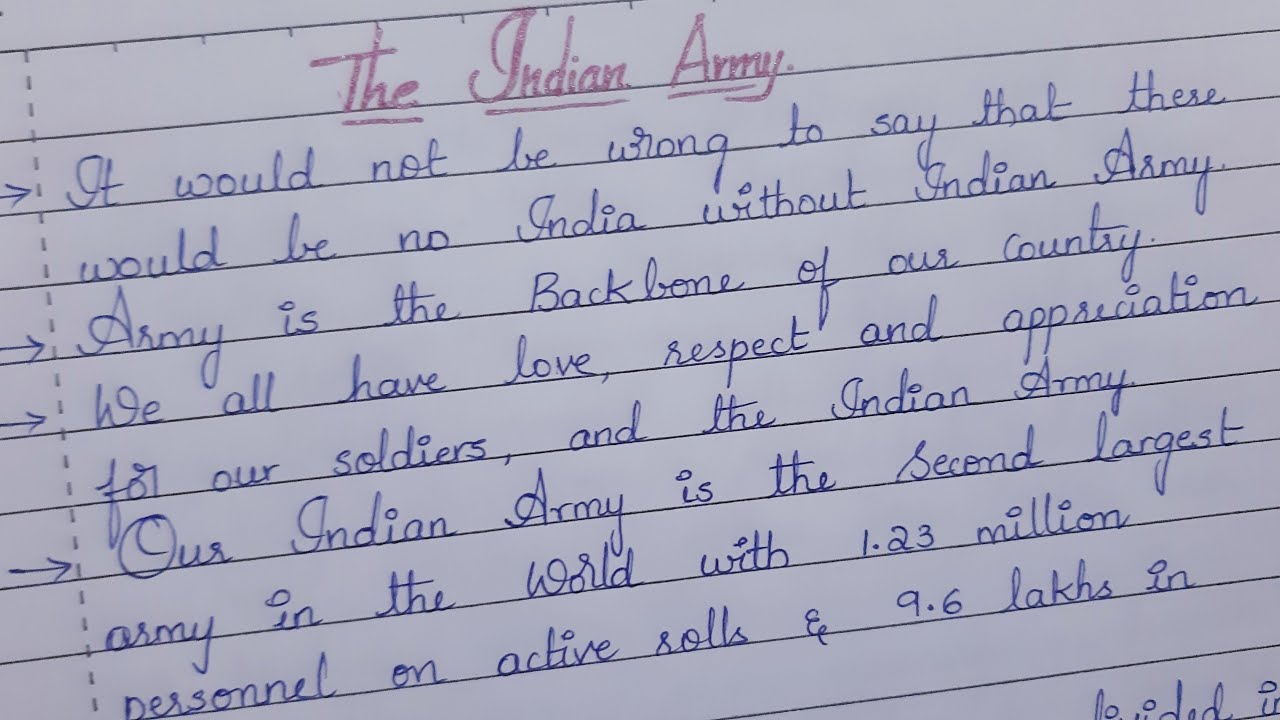 The Indian Army.
→ It would not be wrong to say that there
would be no India without Indian Army.
→ Army is the Backbone of our country.
→ We all have love, respect and appreciation
for our soldiers, and the Indian Army.
→ Our Indian Army is the second largest
army in the world with 1.23 million
personnel on active rolls & 9.6 lakhs in